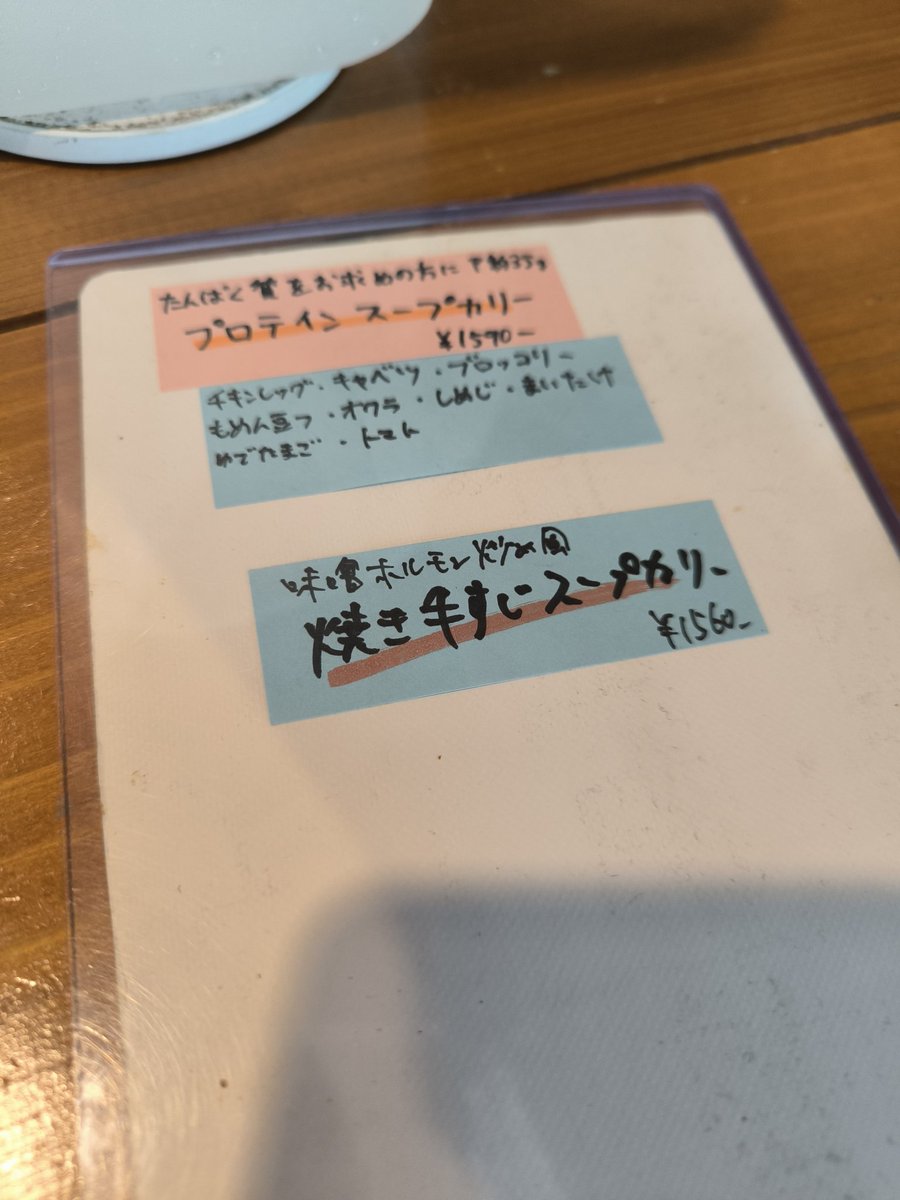 たんぱく質をお求めの方に P約35g
プロテインスープカリー
¥1590-
チキンレッグ・キャベツ・ブロッコリー
もめん豆フ・オクラ・しめじ・まいたけ
ゆでたまご・トマト
味噌ホルモン炒め風
焼き牛すじスープカリー
¥1560-